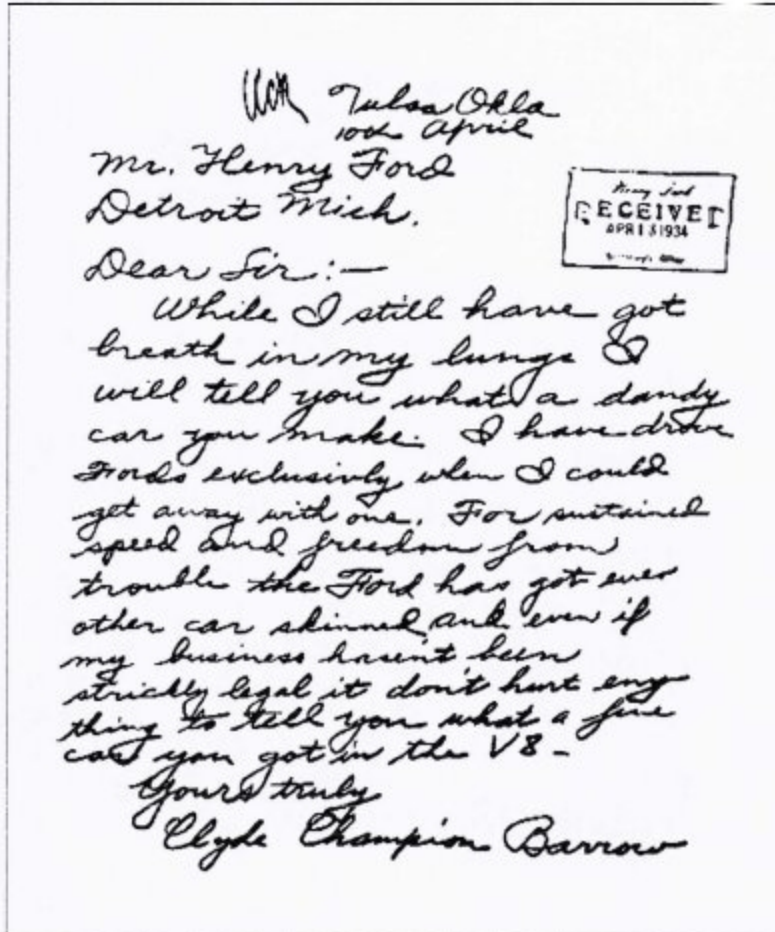 Tulsa Okla
10th April
Mr. Henry Ford
Detroit Mich.
Henry Ford
RECEIVED
APR 13 1934
Dear Sir:—
While I still have got
breath in my lungs I
will tell you what a dandy
car you make. I have drove
Fords exclusivly when I could
get away with one. For sustained
speed and freedom from
trouble the Ford has got ever
other car skinned, and even if
my business hasen't been
strickly legal it don't hurt eny
thing to tell you what a fine
car you got in the V8 -
Yours truly
Clyde Champion Barrow